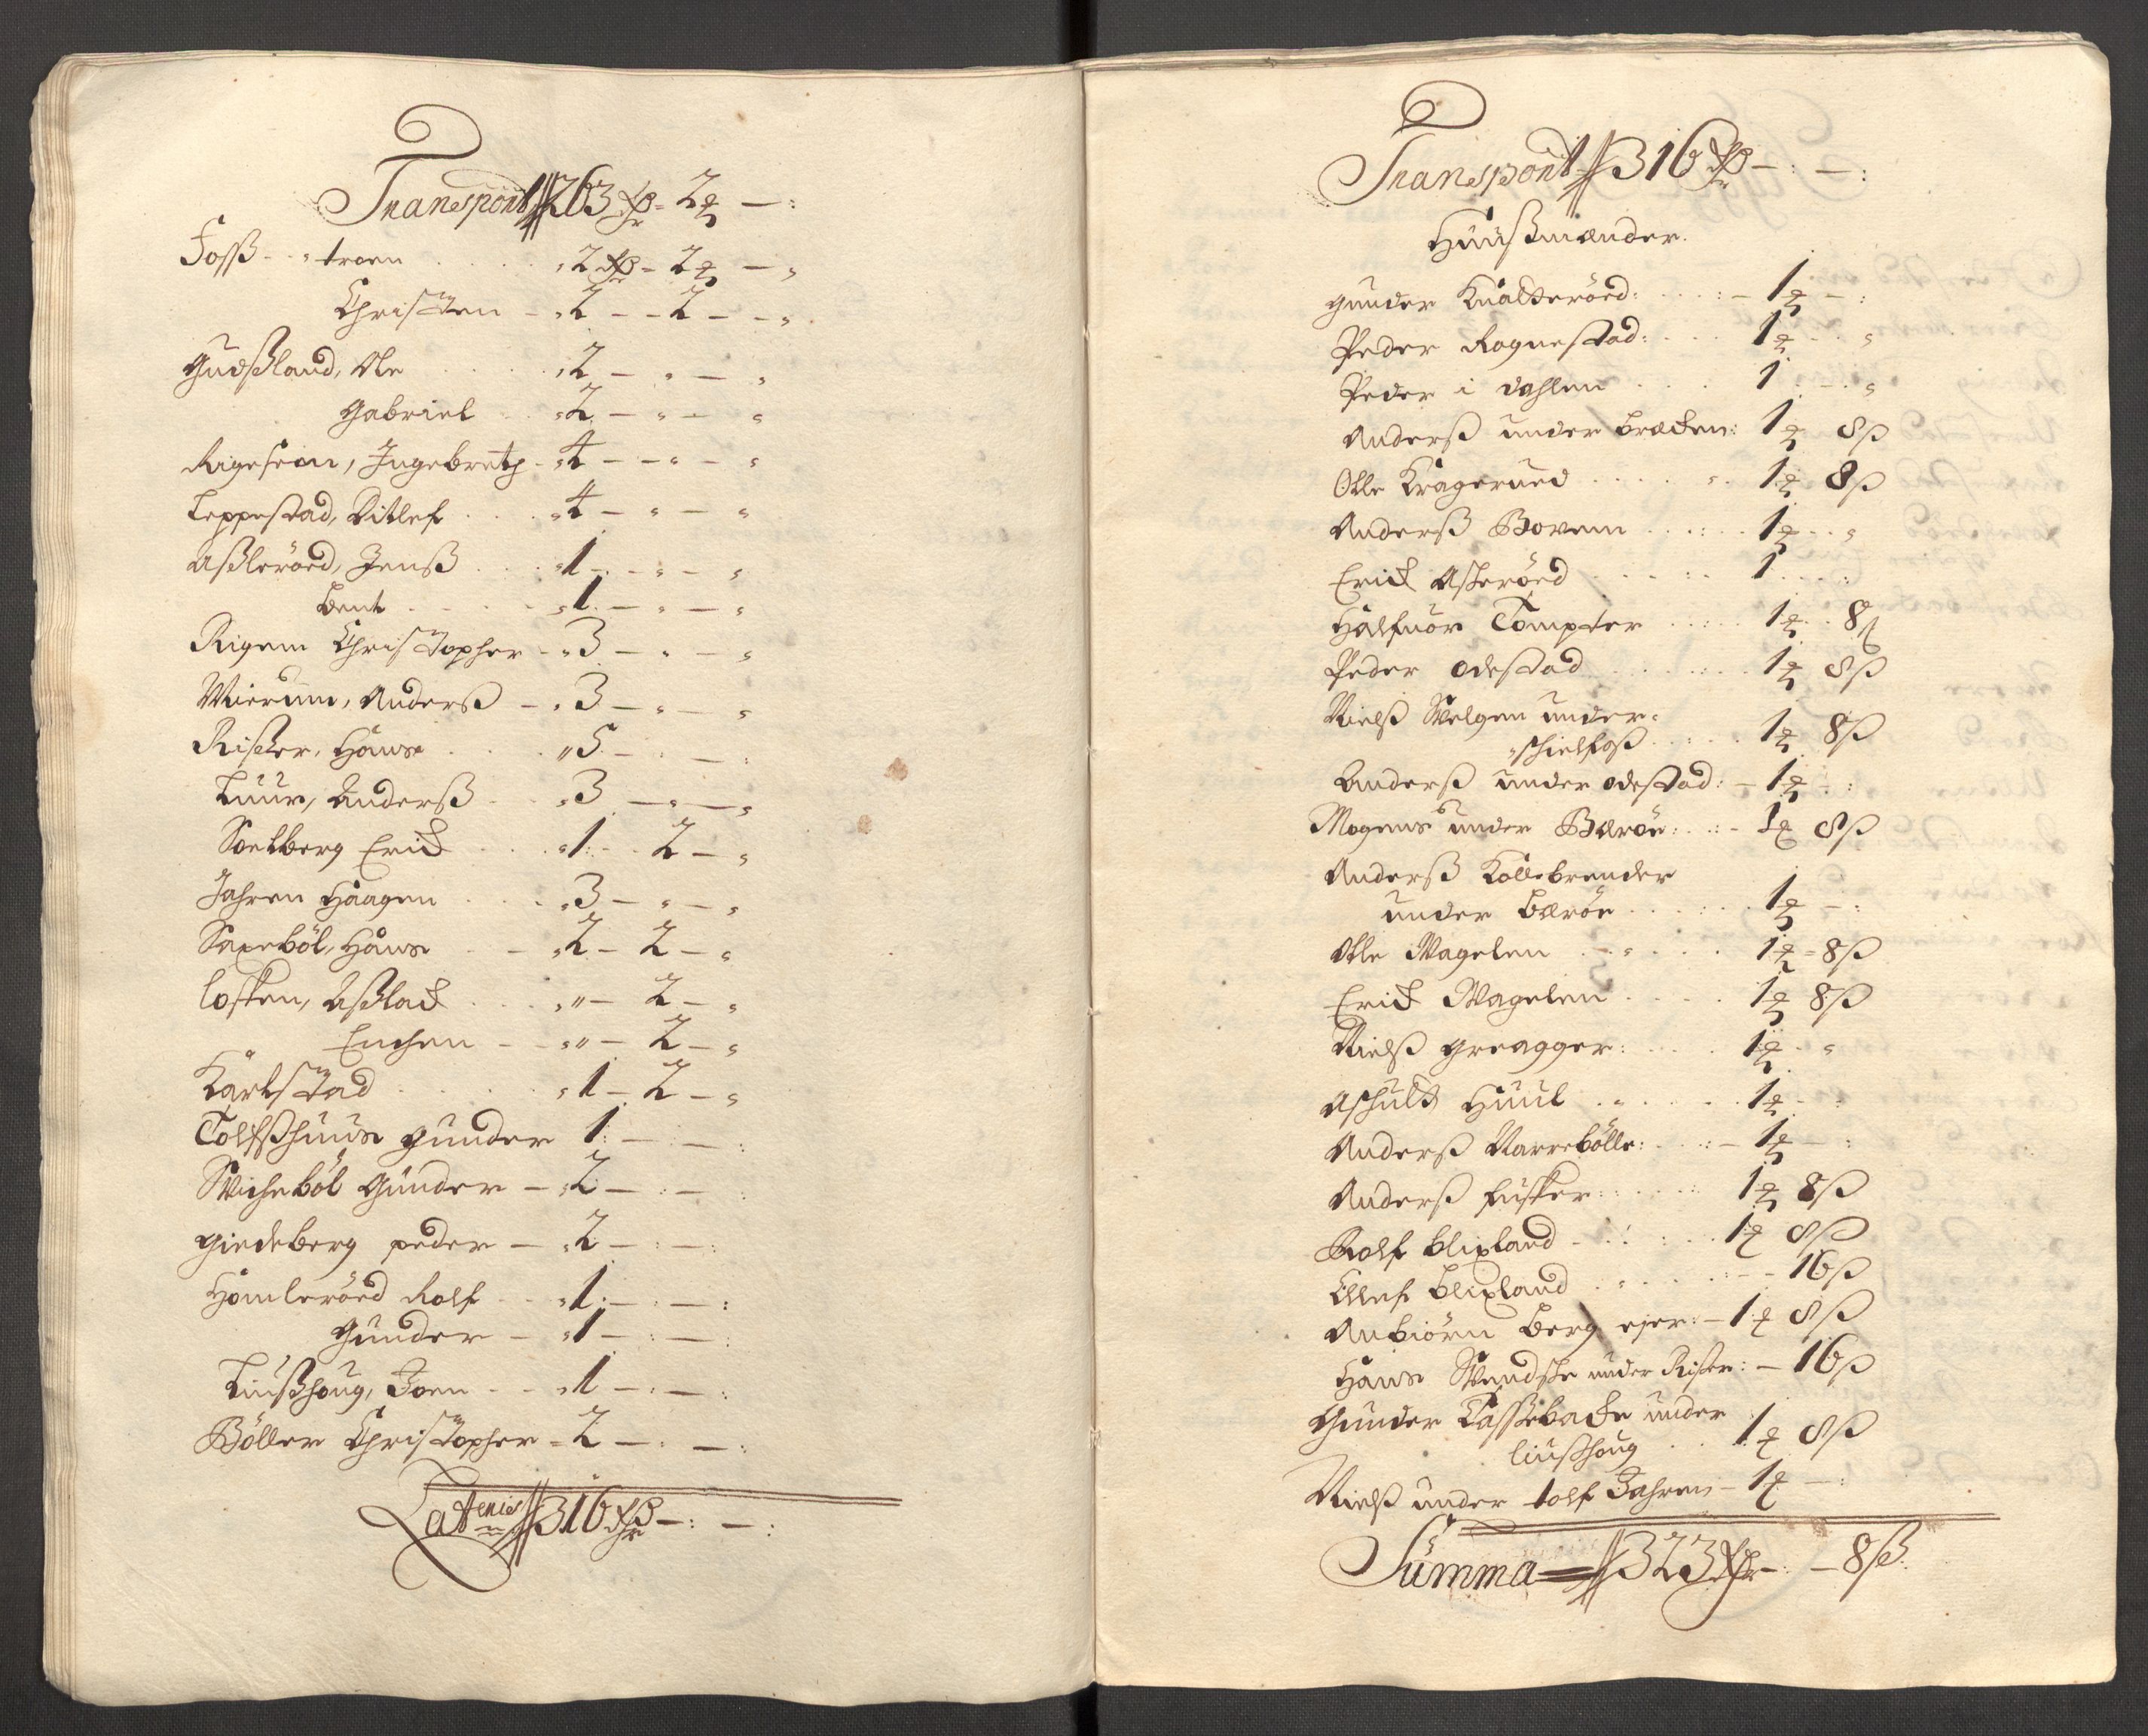 Transport 263 rdr - 2 ort - :
Foss - troen . . . . 2 rdr - 2 ort - "
Christen - 2 - - 2 - - "
Gudßland, Ole . . . . 2 - " - "
Gabriel . . 2 - " - "
Rigeseim, Ingebretz - 4 - - " - "
Leppestad, Ditlef . . . 4 - " - "
Aßleröed, Jenß . . . 1 - " - "
bent . . . . 1 - " - "
Rigem Christopher - 3 - " - "
Mierum, Anderß - 3 - " - "
Rißer, Hans . . . " 5 - : - :
Luur, Anderß . . 3 - " - "
Soelberg Erick . . . 1 - - 2 - "
Jahren Haagen . . . 3 - " - "
Saxeböl, Hans . . - 2 - 2 - "
losken, Aßlack . . . " - 2 - "
Enchen - - " - 2 - "
Karlstad . . . . 1 - 2 - "
Tolfßhuus gunder 1 - : - :
Wicheböl Gunder - 2 - : - :
giedeberg peder - 2 - : - :
Homleröed Rolf . . 1 - : - :
Gunder - 1 - : - :
Liußhoug, Joen - - 1 - : - :
Böller Christopher - 2 - : - :
Lat eris 316 rdr - : - :
Transport 316 rdr - : - :
Huußmænder.
gunder Knalderöed: . . : - 1 ort - :
Peder Rognestad: . . . 1 ort . . "
Peder i dahlen . . . 1 . - "
Anderß under bracken: 1 ort 8 ß
Olle Kragerued . . . . 1 ort 8 ß
Anderß Bovem . . . . 1 ort . . "
Erick Askeröed . . . . 1 . . . :
Halfuor Tompter . . . . 1 ort . 8 ß
Peder Odestad . . . . 1 ort 8 ß
Nielß Welgen under
schielfoß . . . . 1 ort 8 ß
Anderß under odestad: - 1 ort - :
Mogens under Bæröe: . : - 1 ort 8 ß
Anderß Kollebrender
under Bæröe . . . . 1 ort - :
Olle Wagelen . . . . 1 ort - 8 ß
Erick Wagelen . . . . 1 ort 8 ß
Nielß greagger: . . . . 1 ort . "
Aschult Huul . . . . 1 ort - :
Anderß Narrebölle: . . : - 1 ort - :
Anderß fisker . . . . 1 ort 8 ß
Rolf blixland . . . . 1 ort 8 ß
Ellef blixland . . . . - 16 ß
Anbiörn berg ejer: - 1 ort 8 ß
Hans Wendske under Rißer: - 16 ß
Gunder Tassebacke under
liußhoug . . 1 ort 8 ß
Nielß under tolf Jahren - 1 ort - :
Summa 323 rdr - : - 8 ß